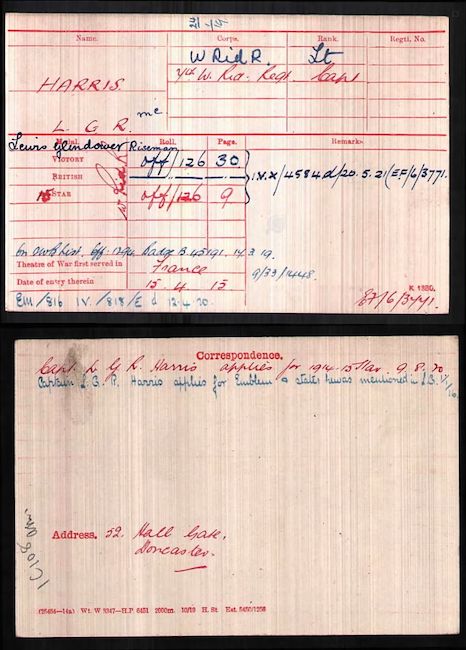 Name. Corps. Rank. Regtl. No.
W Rid R. Lt
HARRIS 1/4 W. Rid. Regt. Capt
L. G. R. mc
Medal. Roll. Page. Remarks.
Lewis Glindower Riseman
VICTORY off/126 30
BRITISH IV.X/4584d/20.5.21 (EF/6/3771.
15 STAR off/126 9
W Rid R
Badge B 45191. 14.3.19.
Theatre of War first served in France 9/33/1448.
Date of entry therein 15 4 15 K 1380.
EM/816 IV./818/E d 12.4.20. EF/6/3771.
Correspondence.
Capt. L G R. Harris applies for 1914-15 Star 9.8.20
Captain L. G. R. Harris applies for Emblem & states he was mentioned in
Address. 52. Hall Gate,
Doncaster.
(25454—14a) Wt. W 5347—H.P 6451 2000m. 10/19 H. St. Est 5450/1256